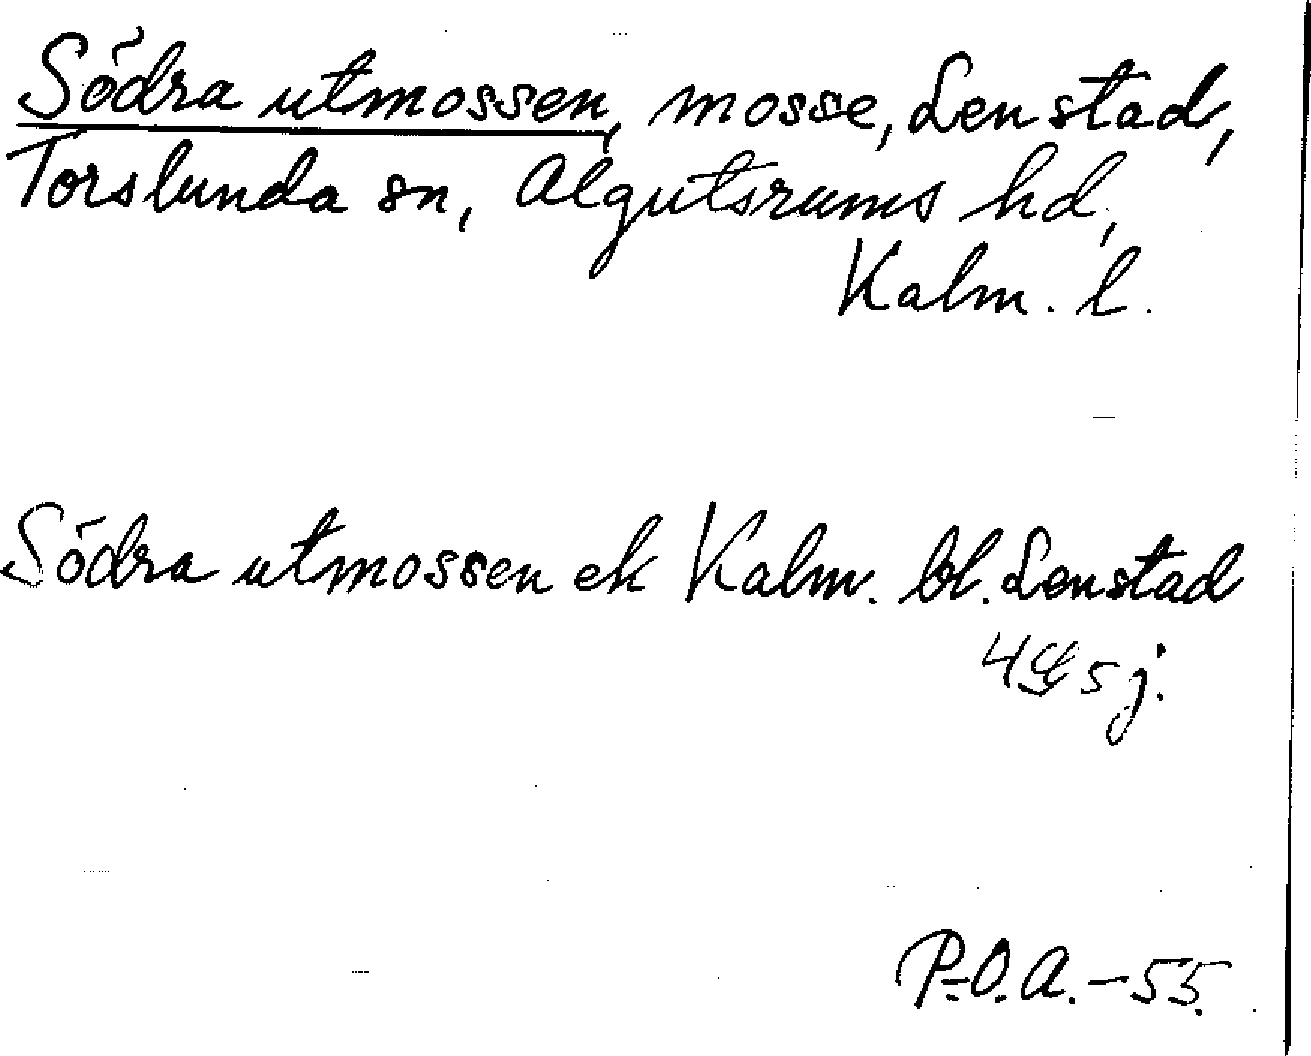 Södra utmossen, mosse, Lenstad,
Torslunda sn, Algutsrums hd,
Kalm. l.
Södra utmossen ek Kalm. bl. Lenstad
4 5 j.
P.-O.A. -55.